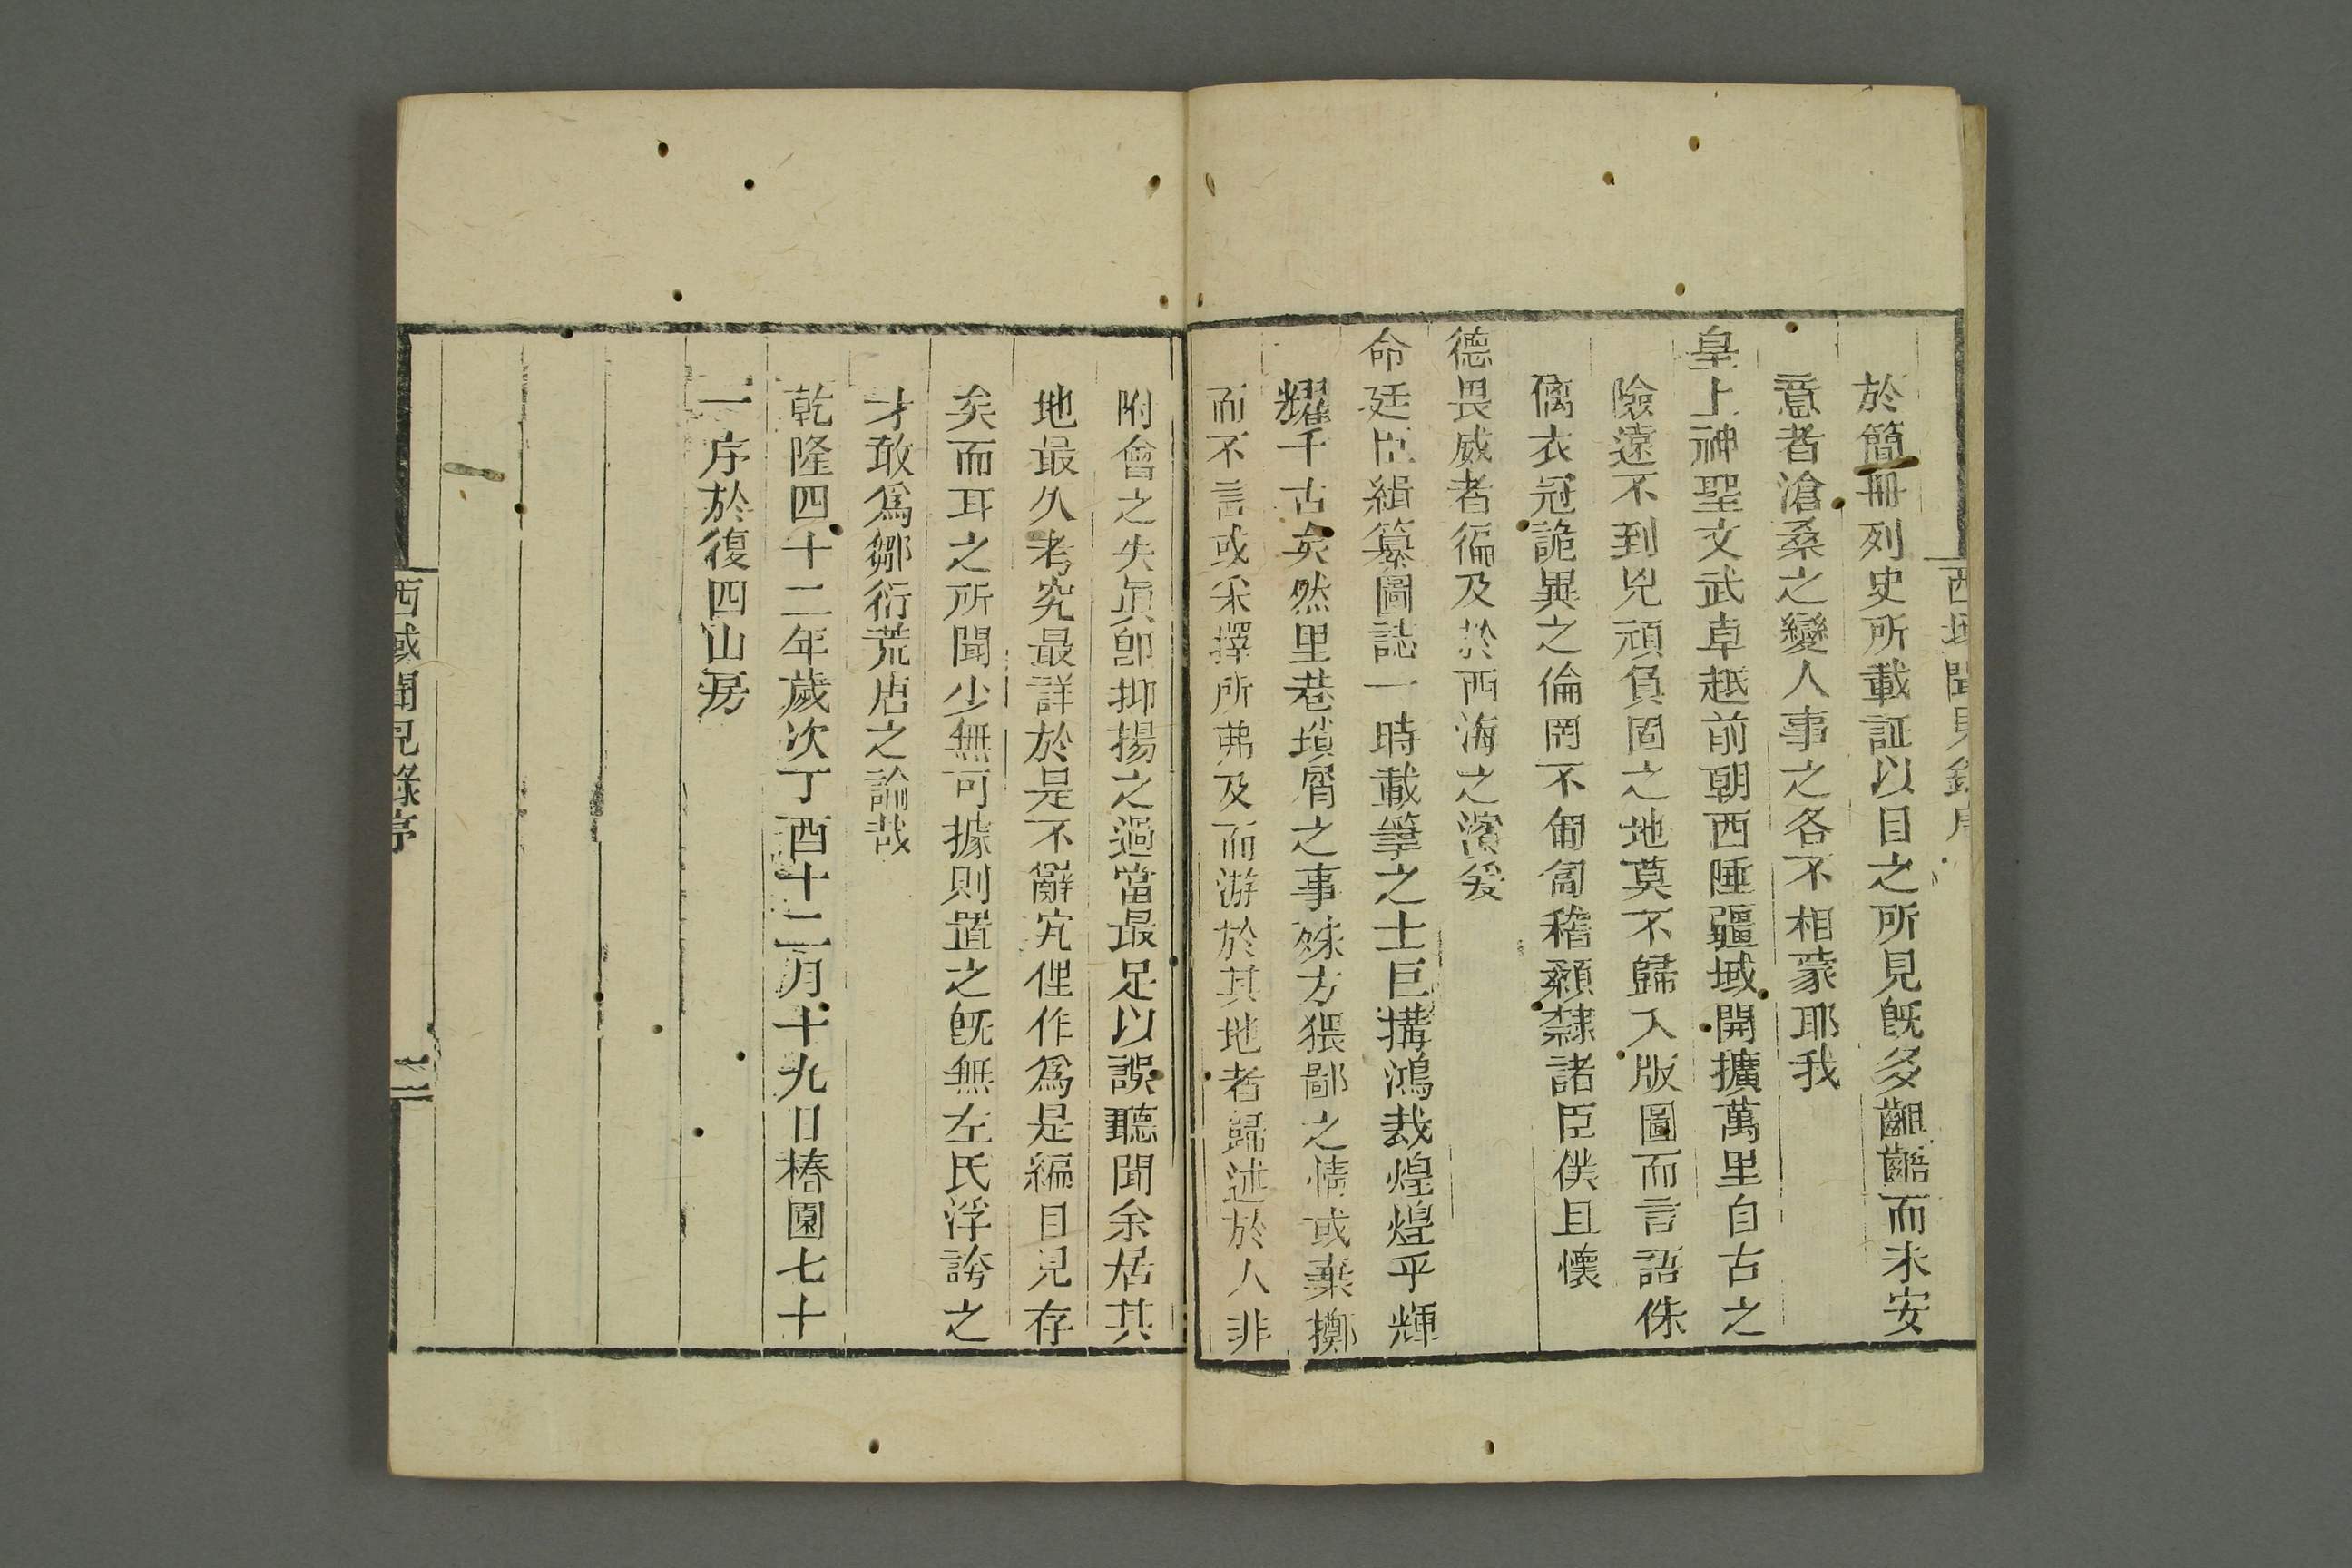 西域聞見錄序
於簡冊列史所載証以目之所見旣多齟齬而未安
意者滄桑之變人事之各不相蒙耶我
皇上神聖文武卓越前朝西陲疆域開擴萬里自古之
險遠不到兇頑負固之地莫不歸入版圖而言語侏
𠌯衣冠詭異之倫罔不匍匐稽顙隸諸臣僕且懷
德畏威者徧及於西海之濱爰
命廷臣緝纂圖誌一時載筆之士巨搆鴻裁煌煌乎輝
耀千古矣然里巷瑣屑之事殊方猥鄙之情或棄擲
而不言或采擇所弗及而游於其地者歸述於人非
附會之失眞卽抑揚之過當最足以誤聽聞余居其
地最久考究最詳於是不辭穴俚作爲是編目見存
矣而耳之所聞少無可據則置之旣無左氏浮誇之
才敢爲鄒衍荒唐之論哉
乾隆四十二年歲次丁酉十二月十九日椿園七十
一序於復四山房
西域聞見錄序
二